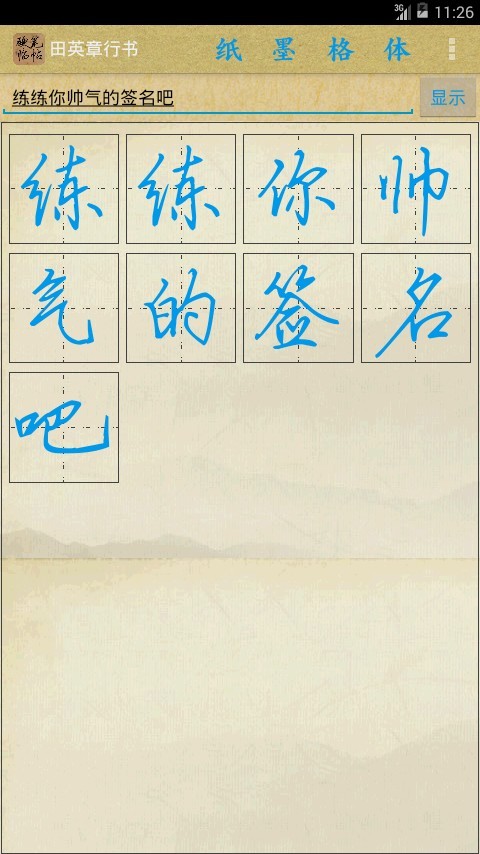 3G 11:26
硬笔临帖 田英章行书 纸 墨 格 体
练练你帅气的签名吧 显示
练 练 你 帅
气 的 签 名
吧